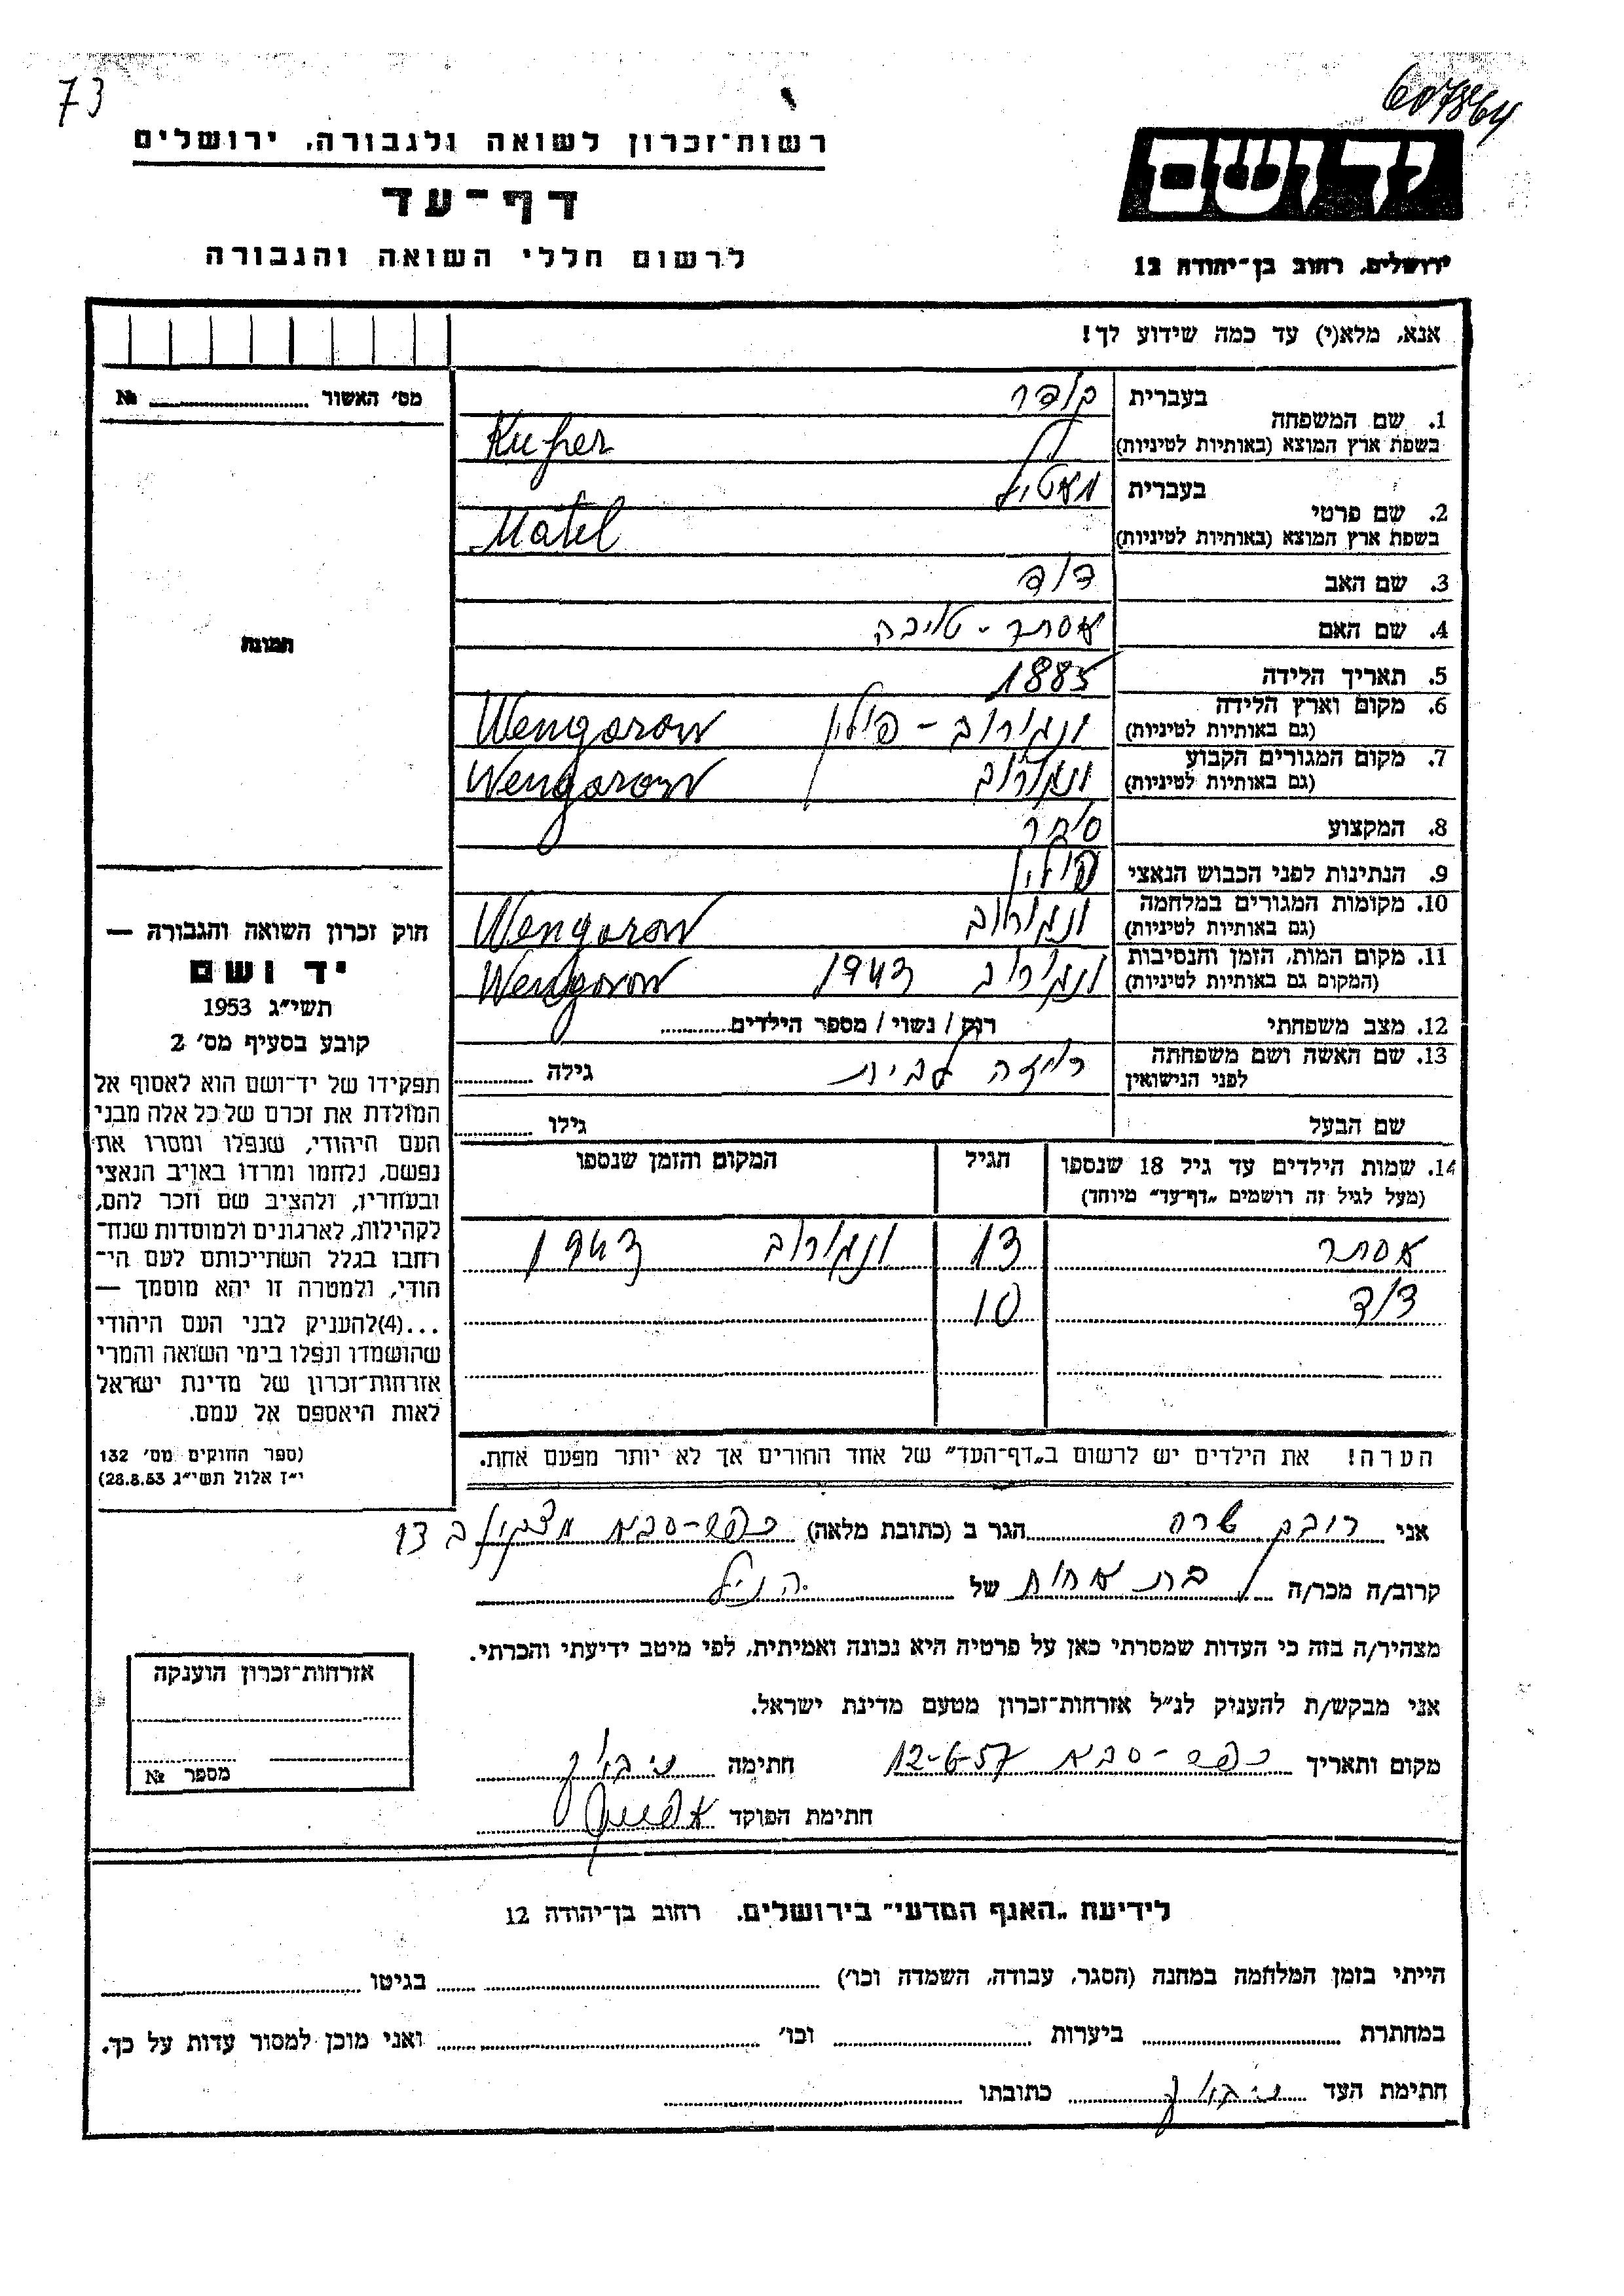 73
607864
רשות־זכרון לשואה ולגבורה, ירושלים
דף־עד
לרשום חללי השואה והגבורה
יד ושם
ירושלים, רחוב בן־יהודה 12
אנא, מלא(י) עד כמה שידוע לך!
מס׳ האשור № 
תמונה
1. שם המשפחה
בעברית קופר
בשפת ארץ המוצא (באותיות לטיניות) Kufer
2. שם פרטי
בעברית מאטיל
בשפת ארץ המוצא (באותיות לטיניות) Matel
3. שם האב דוד
4. שם האם אסתר - טויבה
5. תאריך הלידה 1885
6. מקום וארץ הלידה ונגורוב - פולין Wengorow
(גם באותיות לטיניות)
7. מקום המגורים הקבוע ונגרוב Wengorow
(גם באותיות לטיניות)
8. המקצוע סוחר
9. הנתינות לפני הכבוש הנאצי פולין
10. מקומות המגורים במלחמה ונגורוב Wengorow
(גם באותיות לטיניות)
11. מקום המות, הזמן והנסיבות ונגורוב 1943 Wengorow
(המקום גם באותיות לטיניות)
12. מצב משפחתי רווק / נשוי / מספר הילדים
13. שם האשה ושם משפחתה
לפני הנישואין רייזה גילה
שם הבעל גילו
14. שמות הילדים עד גיל 18 שנספו הגיל המקום והזמן שנספו
(מעל לגיל זה רושמים „דף־עד” מיוחד)
אסתר 13 ונגורוב 1943
דוד 10
הערה! את הילדים יש לרשום ב„דף־העד” של אחד ההורים אך לא יותר מפעם אחת.
חוק זכרון השואה והגבורה —
יד ושם
תשי״ג 1953
קובע בסעיף מס׳ 2
תפקידו של יד־ושם הוא לאסוף אל
המולדת את זכרם של כל אלה מבני
העם היהודי, שנפלו ומסרו את
נפשם, נלחמו ומרדו באויב הנאצי
ובעוזריו, ולהציב שם וזכר להם,
לקהילות, לארגונים ולמוסדות שנח־
רבו בגלל השתייכותם לעם הי־
הודי, ולמטרה זו יהא מוסמך —
...(4) להעניק לבני העם היהודי
שהושמדו ונפלו בימי השואה והמרי
אזרחות־זכרון של מדינת ישראל
לאות היאספם אל עמם.
(ספר החוקים מס׳ 132
י״ז אלול תשי״ג 28.8.53)
אני שרה הגר ב (כתובת מלאה) כפר-סבא
קרוב/ה מכר/ה בת אחות של הנ״ל
מצהיר/ה בזה כי העדות שמסרתי כאן על פרטיה היא נכונה ואמיתית, לפי מיטב ידיעתי והכרתי.
אני מבקש/ת להעניק לנ״ל אזרחות־זכרון מטעם מדינת ישראל.
מקום ותאריך כפר-סבא 12-6-57 חתימה
חתימת הפוקד
אזרחות־זכרון הוענקה
מספר №
לידיעת „האגף המדעי” בירושלים, רחוב בן־יהודה 12
הייתי בזמן המלחמה במחנה (הסגר, עבודה, השמדה וכו׳) בגיטו
במחתרת ביערות וכו׳ ואני מוכן למסור עדות על כך.
חתימת העד כתובתו